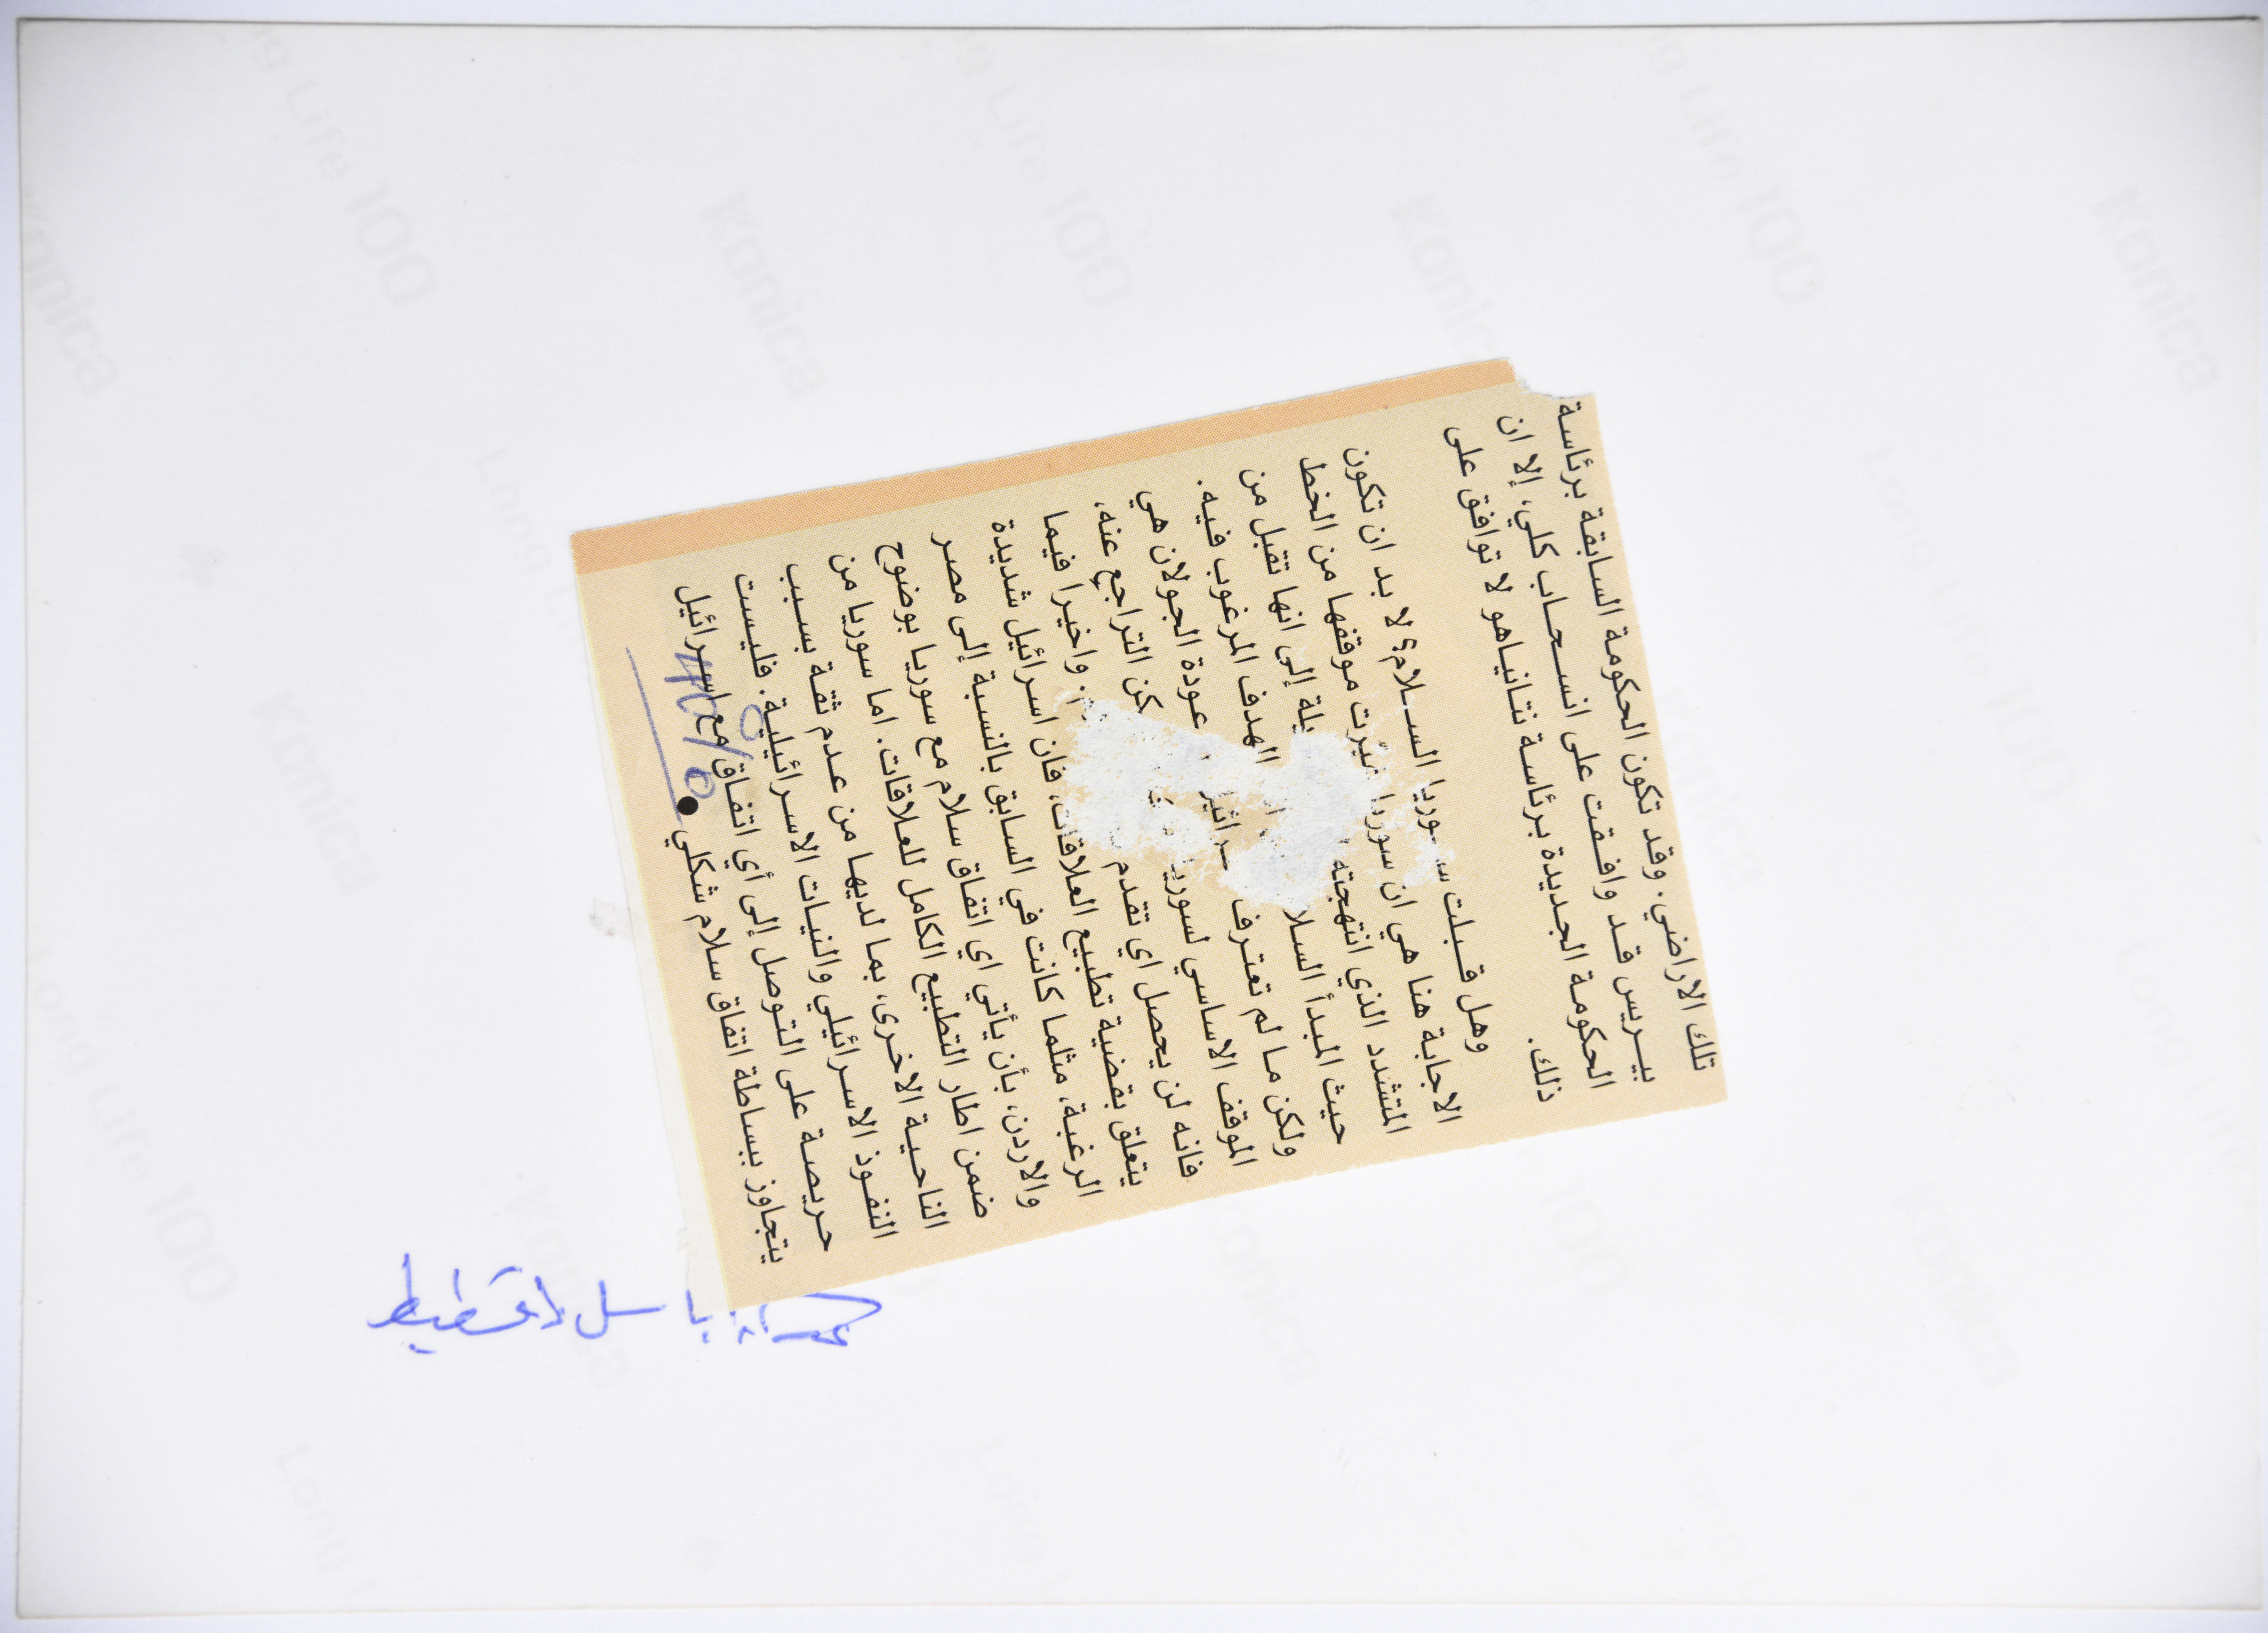 تلك الاراضي. وقد تكون الحكومة السابقة برئاسة
بيريس قد وافقت على انسحاب كلي، إلا ان
الحكومة الجديدة برئاسة نتانياهو لا توافق على
ذلك.
وهل قبلت سوريا السلام؟ لا بد ان تكون
الاجابة هنا هي ان سوريا غيرت موقفها من الخط
المتشدد الذي انتهجته إلى انها تقبل من
حيث المبدأ الهدف المرغوب فيه.
ولكن ما لم تعترف عودة الجولان هي
الموقف الاساسي لسوريا التراجع عنه،
فانه لن يحصل اي تقدم واخيرا فيما
يتعلق بقضية تطبيع العلاقات، فان اسرائيل شديدة
الرغبة، مثلما كانت في السابق بالنسبة إلى مصر
والاردن، بأن يأتي اي اتفاق سلام مع سوريا بوضوح
ضمن اطار التطبيع الكامل للعلاقات. اما سوريا من
الناحية الاخرى، بما لديها من عدم ثقة بسبب
النفوذ الاسرائيلي والنيات الاسرائيلية. فليست
حريصة على التوصل إلى أي اتفاق مع اسرائيل
يتجاوز ببساطة اتفاق سلام شكلي ●
باسل
Konica
Long Life 100